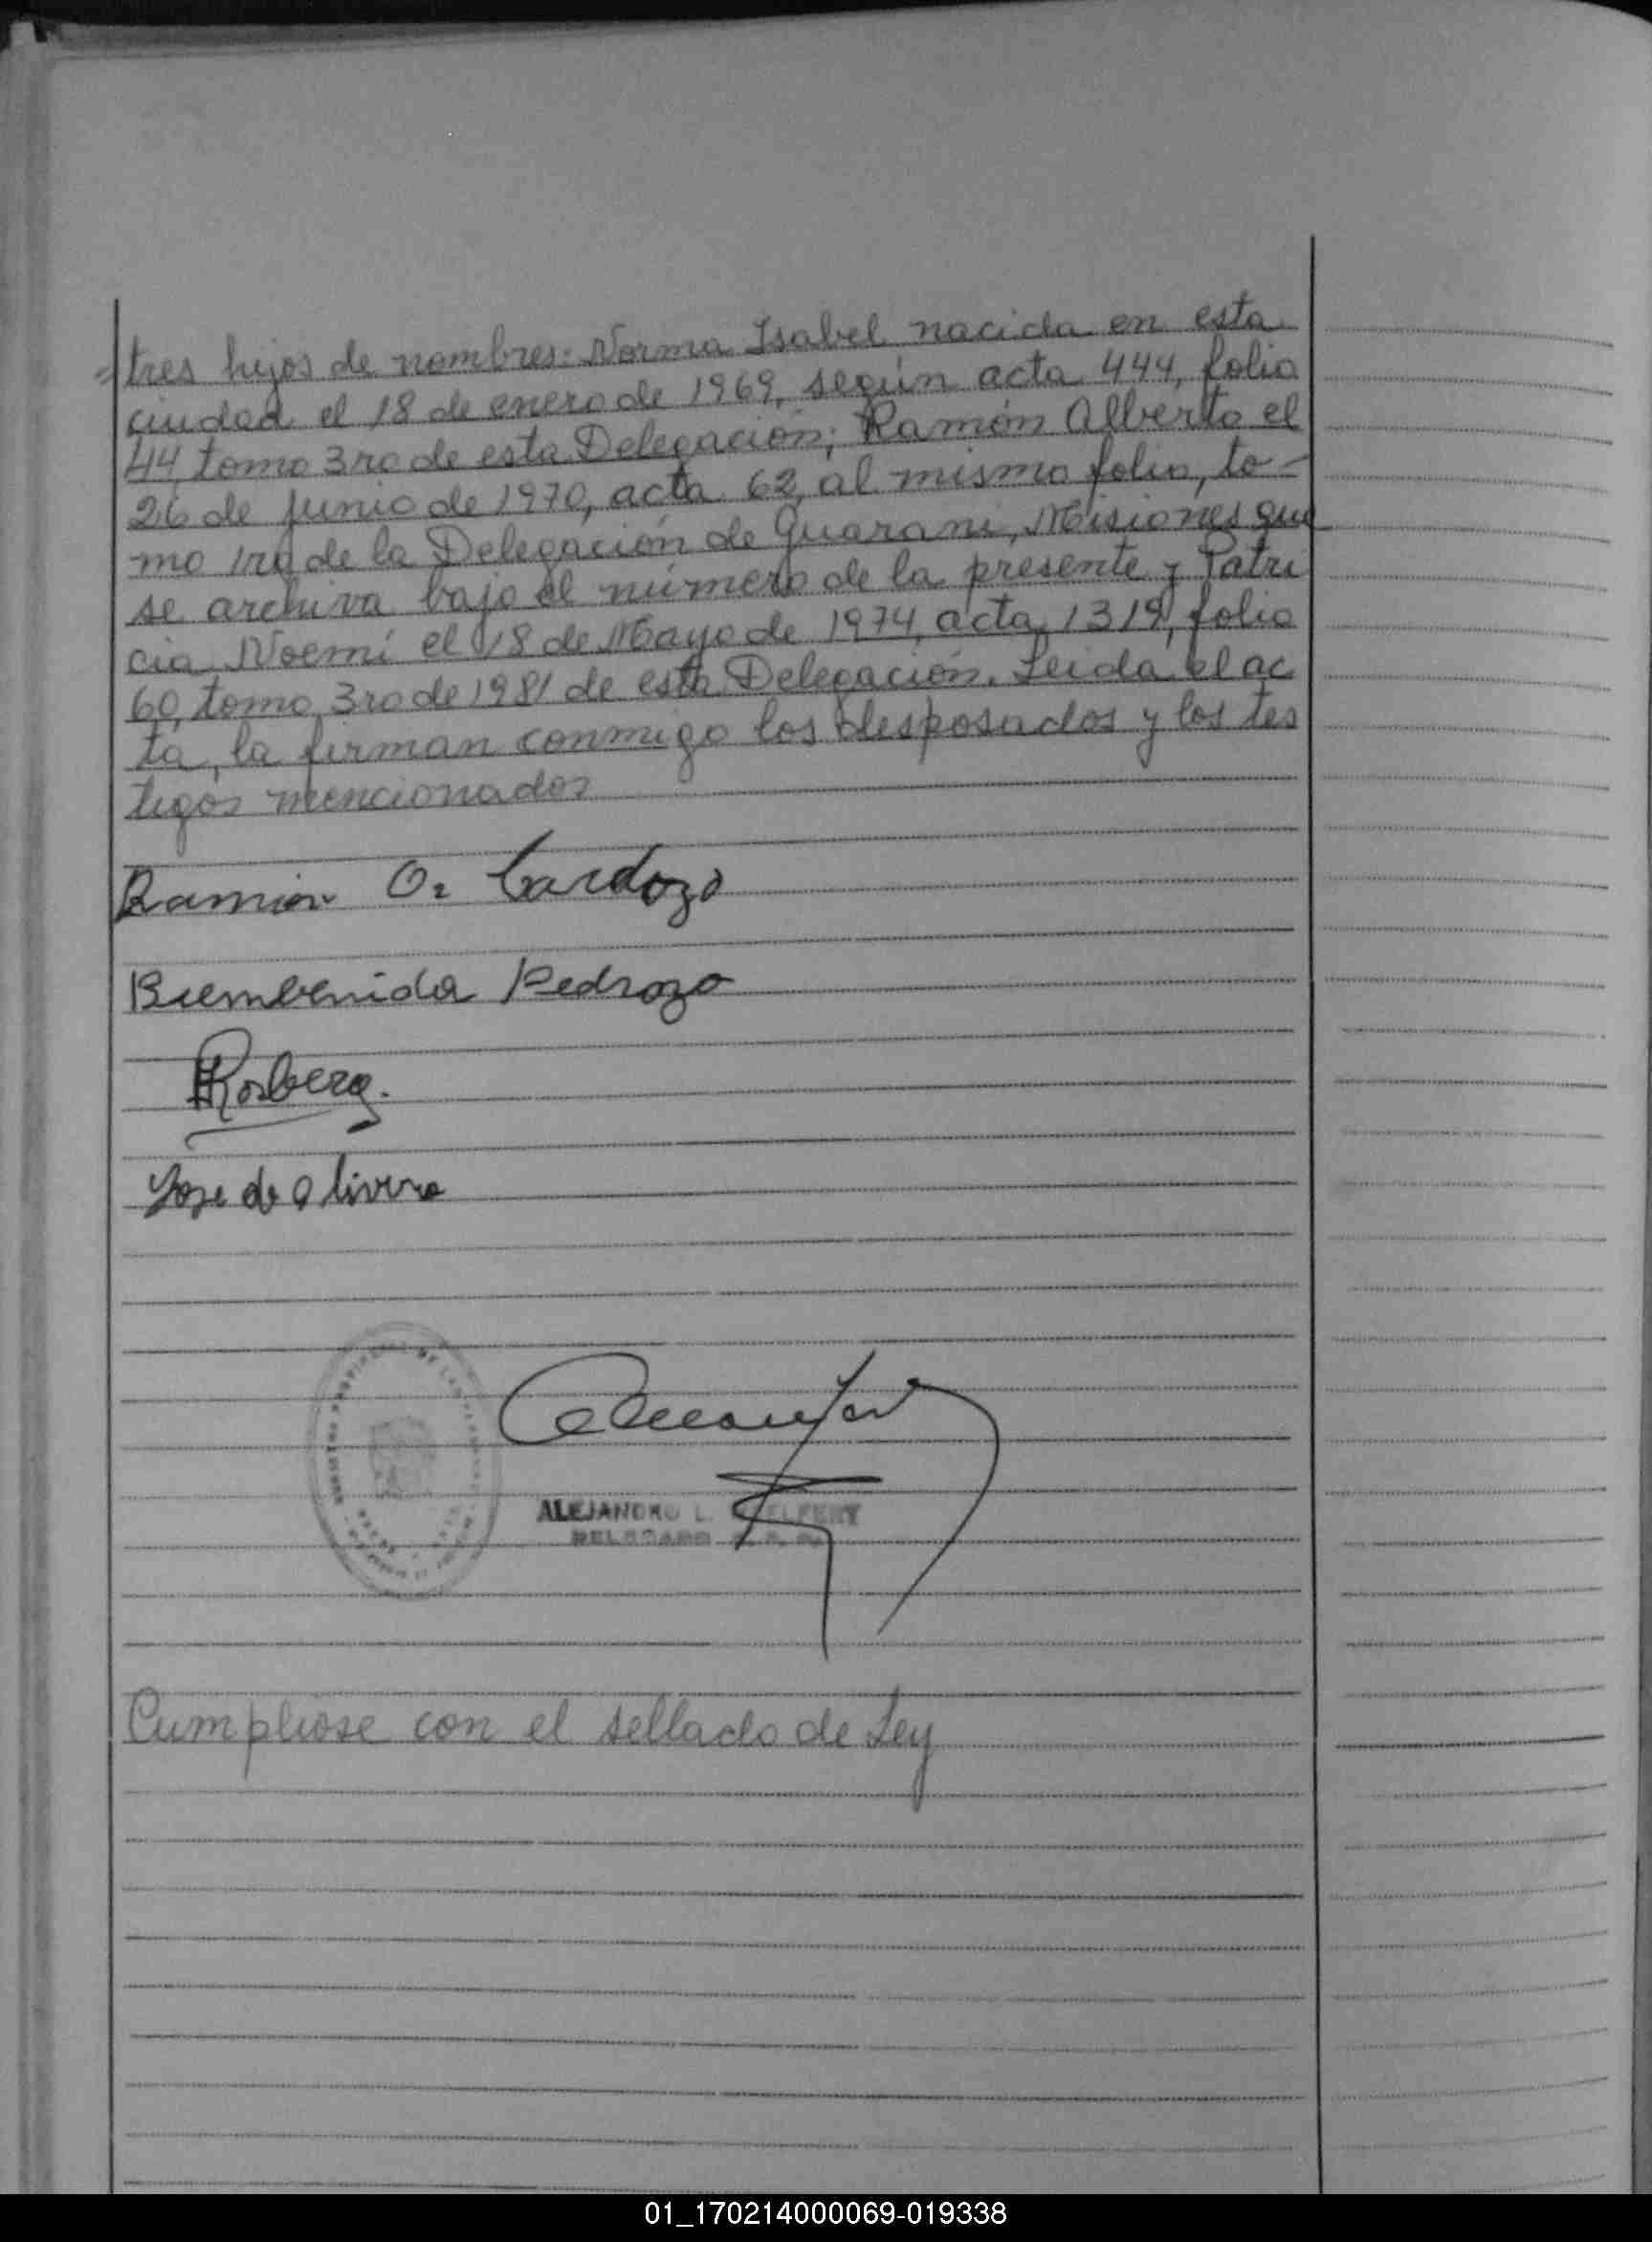 = tres hijos de nombres: Norma Isabel nacida en esta
ciudad el 18 de enero de 1969, según acta 444, folio
44, tomo 3ro de esta Delegación; Ramón Alberto el
26 de Junio de 1970, acta 62, al mismo folio, to-
mo 1ro de la Delegación de Guarani, Misiones que
se archiva bajo el número de la presente y Patri
cia Noemí el 18 de Mayo de 1974, acta 1319, folio
60, tomo 3ro de 1981 de esta Delegación. Leida el ac
ta, la firman conmigo los desposados y los tes
tigos mencionados
Ramón O. Cardozo
Biembenida Pedrozo
Rosberg.
Jose de Olivera
ALEJANDRO L.
DELEGADO
Cumpliose con el sellado de Ley
01_170214000069-019338